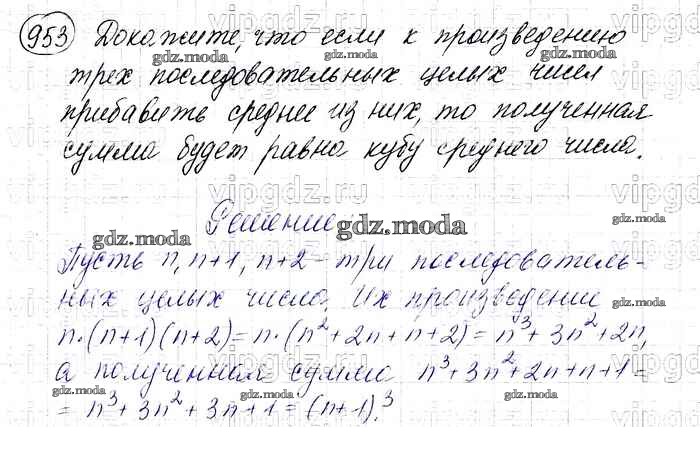 953 Докажите, что если к произведению
трех последовательных целых чисел
прибавить среднее из них, то полученная
сумма будет равна кубу среднего числа.
Решение
Пусть n, n+1, n+2 - три последователь-
ных целых числа. Их произведение
n·(n+1)(n+2)=n·(n²+2n+n+2)=n³+3n²+2n,
а полученная сумма n³+3n²+2n+n+1=
=n³+3n²+3n+1=(n+1)³.